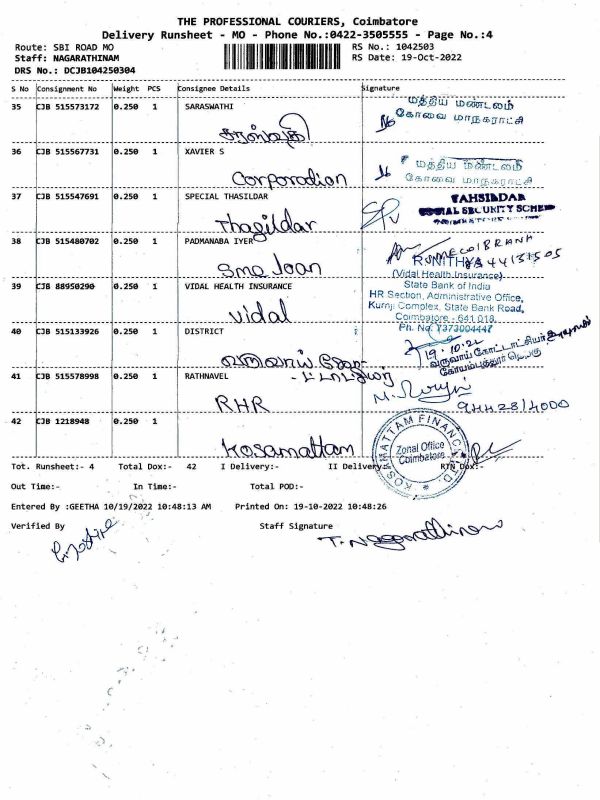 THE PROFESSIONAL COURIERS, Coimbatore
Delivery Runsheet - MO - Phone No.:0422-3505555 - Page No.:4
Route: SBI ROAD MO
RS No.: 1042503
Staff: NAGARATHINAM
RS Date: 19-Oct-2022
DRS No.: DCJB104250304
S No Consignment No Weight PCS Consignee Details Signature
35 CJB 515573172 0.250 1 SARASWATHI
மத்திய மண்டலம்
கோவை மாநகராட்சி
சரஸ்வதி
36 CJB 515567731 0.250 1 XAVIER S
மத்திய மண்டலம்
கோவை மாநகராட்சி
Corporadion
37 CJB 515547691 0.250 1 SPECIAL THASILDAR
TAHSILDAR
SOCIAL SECURITY SCHEME
Thagildar
38 CJB 515480702 0.250 1 PADMANABA IYER
SME COIBRANH
Sme Joan
RUNITHYA
39 CJB 88950290 0.250 1 VIDAL HEALTH INSURANCE
(Vidal Health Insurance)
State Bank of India
HR Section, Administrative Office,
Kurnji Complex, State Bank Road,
Coimbatore - 641 018.
Ph. No. 7373004447
Vidal
40 CJB 515133926 0.250 1 DISTRICT
19.10.22
வருவாய் கோட்டாட்சியர்
கோயம்புத்தூர்
வருவாய்
41 CJB 515578998 0.250 1 RATHNAVEL
RHR
9442814000
42 CJB 1218948 0.250 1
Kosamattam
KOSAMATTAM FINANCE LTD
Zonal Office
Coimbatore
Tot. Runsheet:- 4 Total Dox:- 42 I Delivery:- II Delivery:- RTN Dox:-
Out Time:- In Time:- Total POD:-
Entered By :GEETHA 10/19/2022 10:48:13 AM Printed On: 19-10-2022 10:48:26
Verified By Staff Signature
T. Nagarathinam